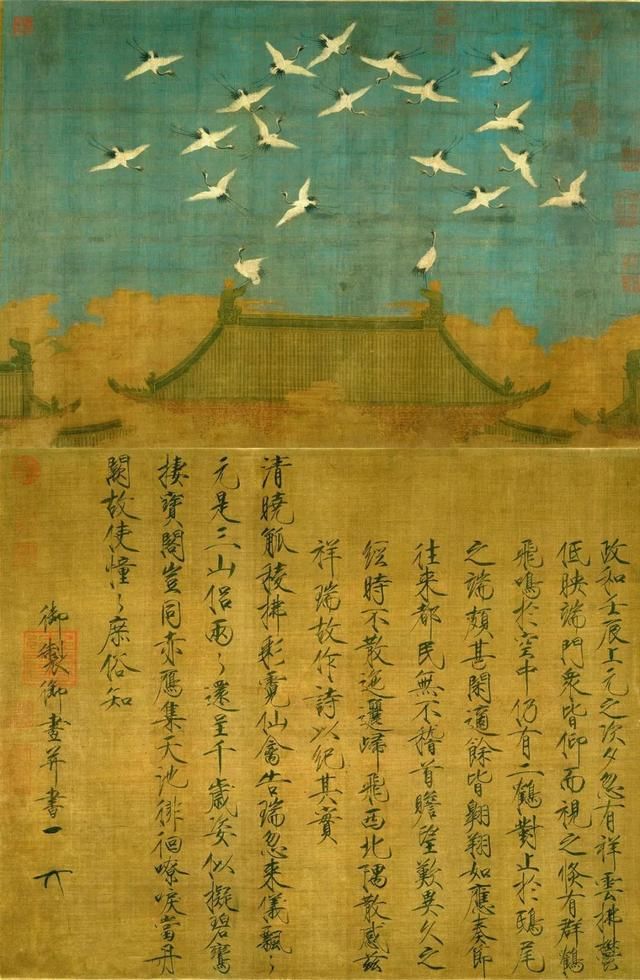 政和壬辰上元之次夕忽有祥雲拂鬱
低映端門衆皆仰而視之倐有群鶴
飛鳴於空中仍有二鶴對止於鴟尾
之端頗甚閑適餘皆翱翔如應奏節
往來都民無不稽首瞻望歎異久之
經時不散迤邐歸飛西北隅散感兹
祥瑞故作詩以紀其實
清曉觚稜拂彩霓仙禽告瑞忽來儀飄〻
元是三山侶兩〻還呈千歲姿似擬碧鸞
棲寶閣豈同赤鴈集天池徘徊嘹唳當丹
闕故使憧〻庶俗知
御製御畫并書